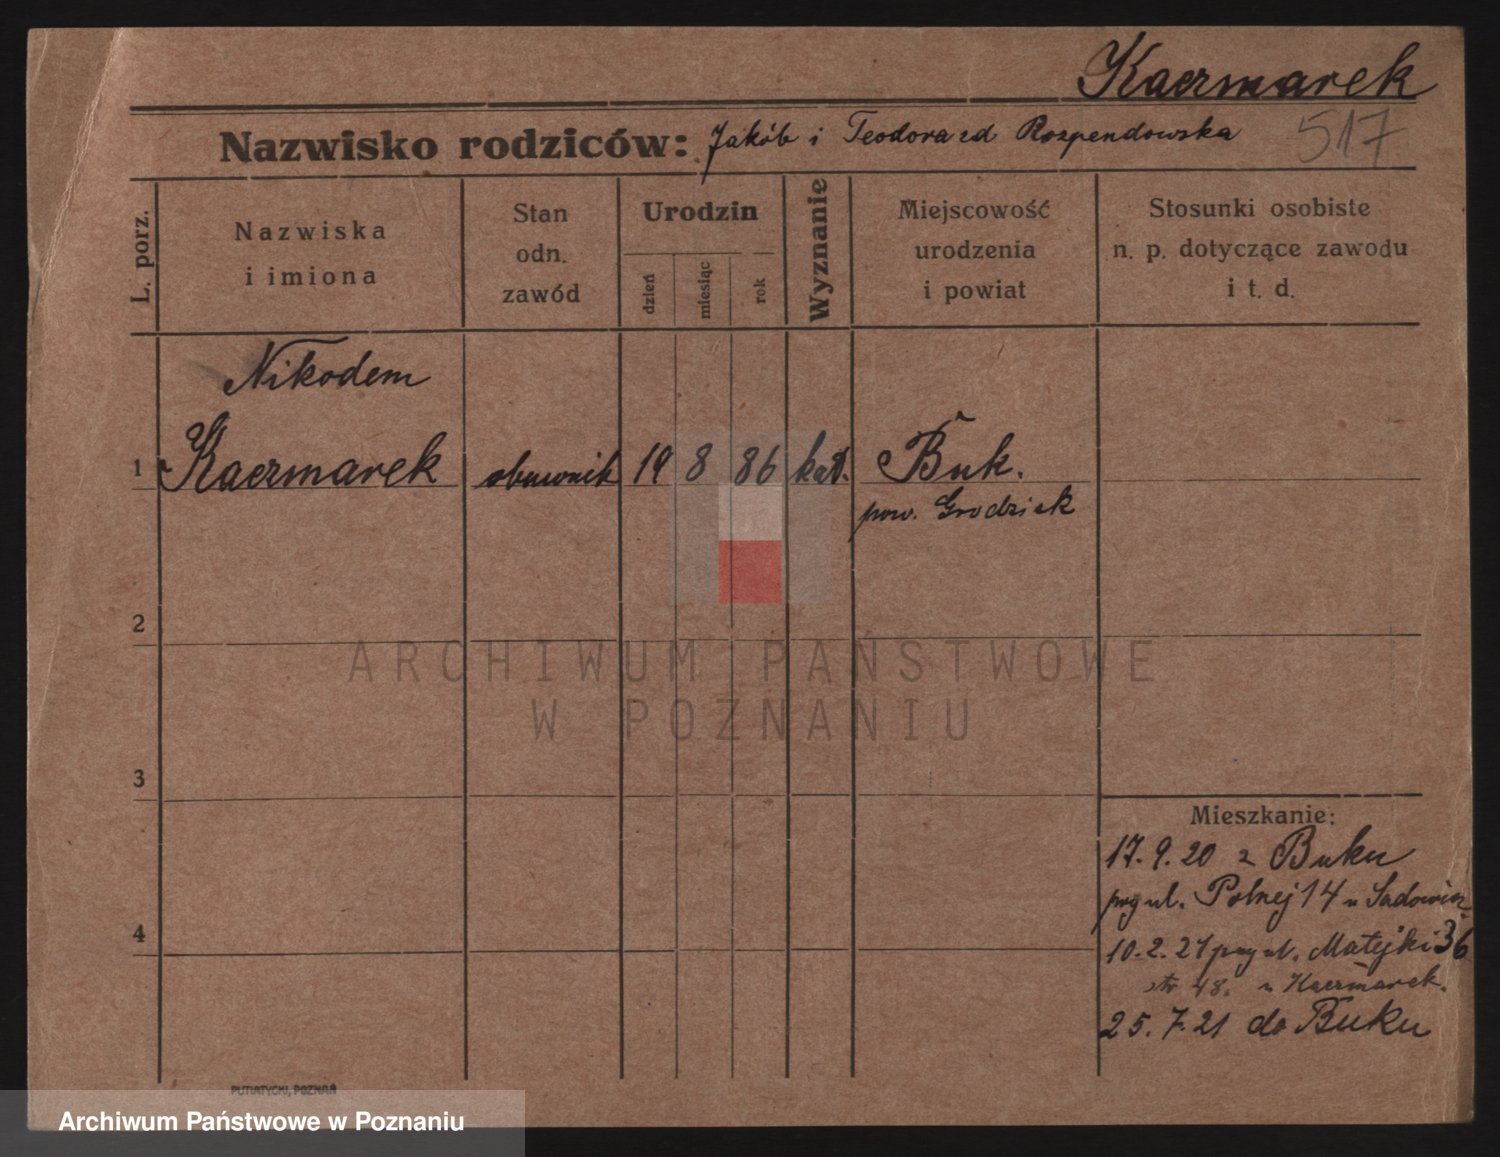 Kaczmarek
Nazwisko rodziców: Jakób i Teodora zd Rozpendowska
517
L. porz.
Nazwiska
i imiona
Stan
odn.
zawód
Urodzin
dzień
miesiąc
rok
Wyznanie
Miejscowość
urodzenia
i powiat
Stosunki osobiste
n. p. dotyczące zawodu
i t. d.
Nikodem
1 Kaczmarek obuwnik 19 8 86 kat. Buk.
pow. Grodzisk
2
3
4
Mieszkanie:
17. 9. 20 z Buku
przy ul. Polnej 14 u
10. 2. 21 przy ul. Matejki 36
48. u Kaczmarek.
25. 7. 21 do Buku
ARCHIWUM PAŃSTWOWE
W POZNANIU
PUTIATYCKI, POZNAŃ
Archiwum Państwowe w Poznaniu